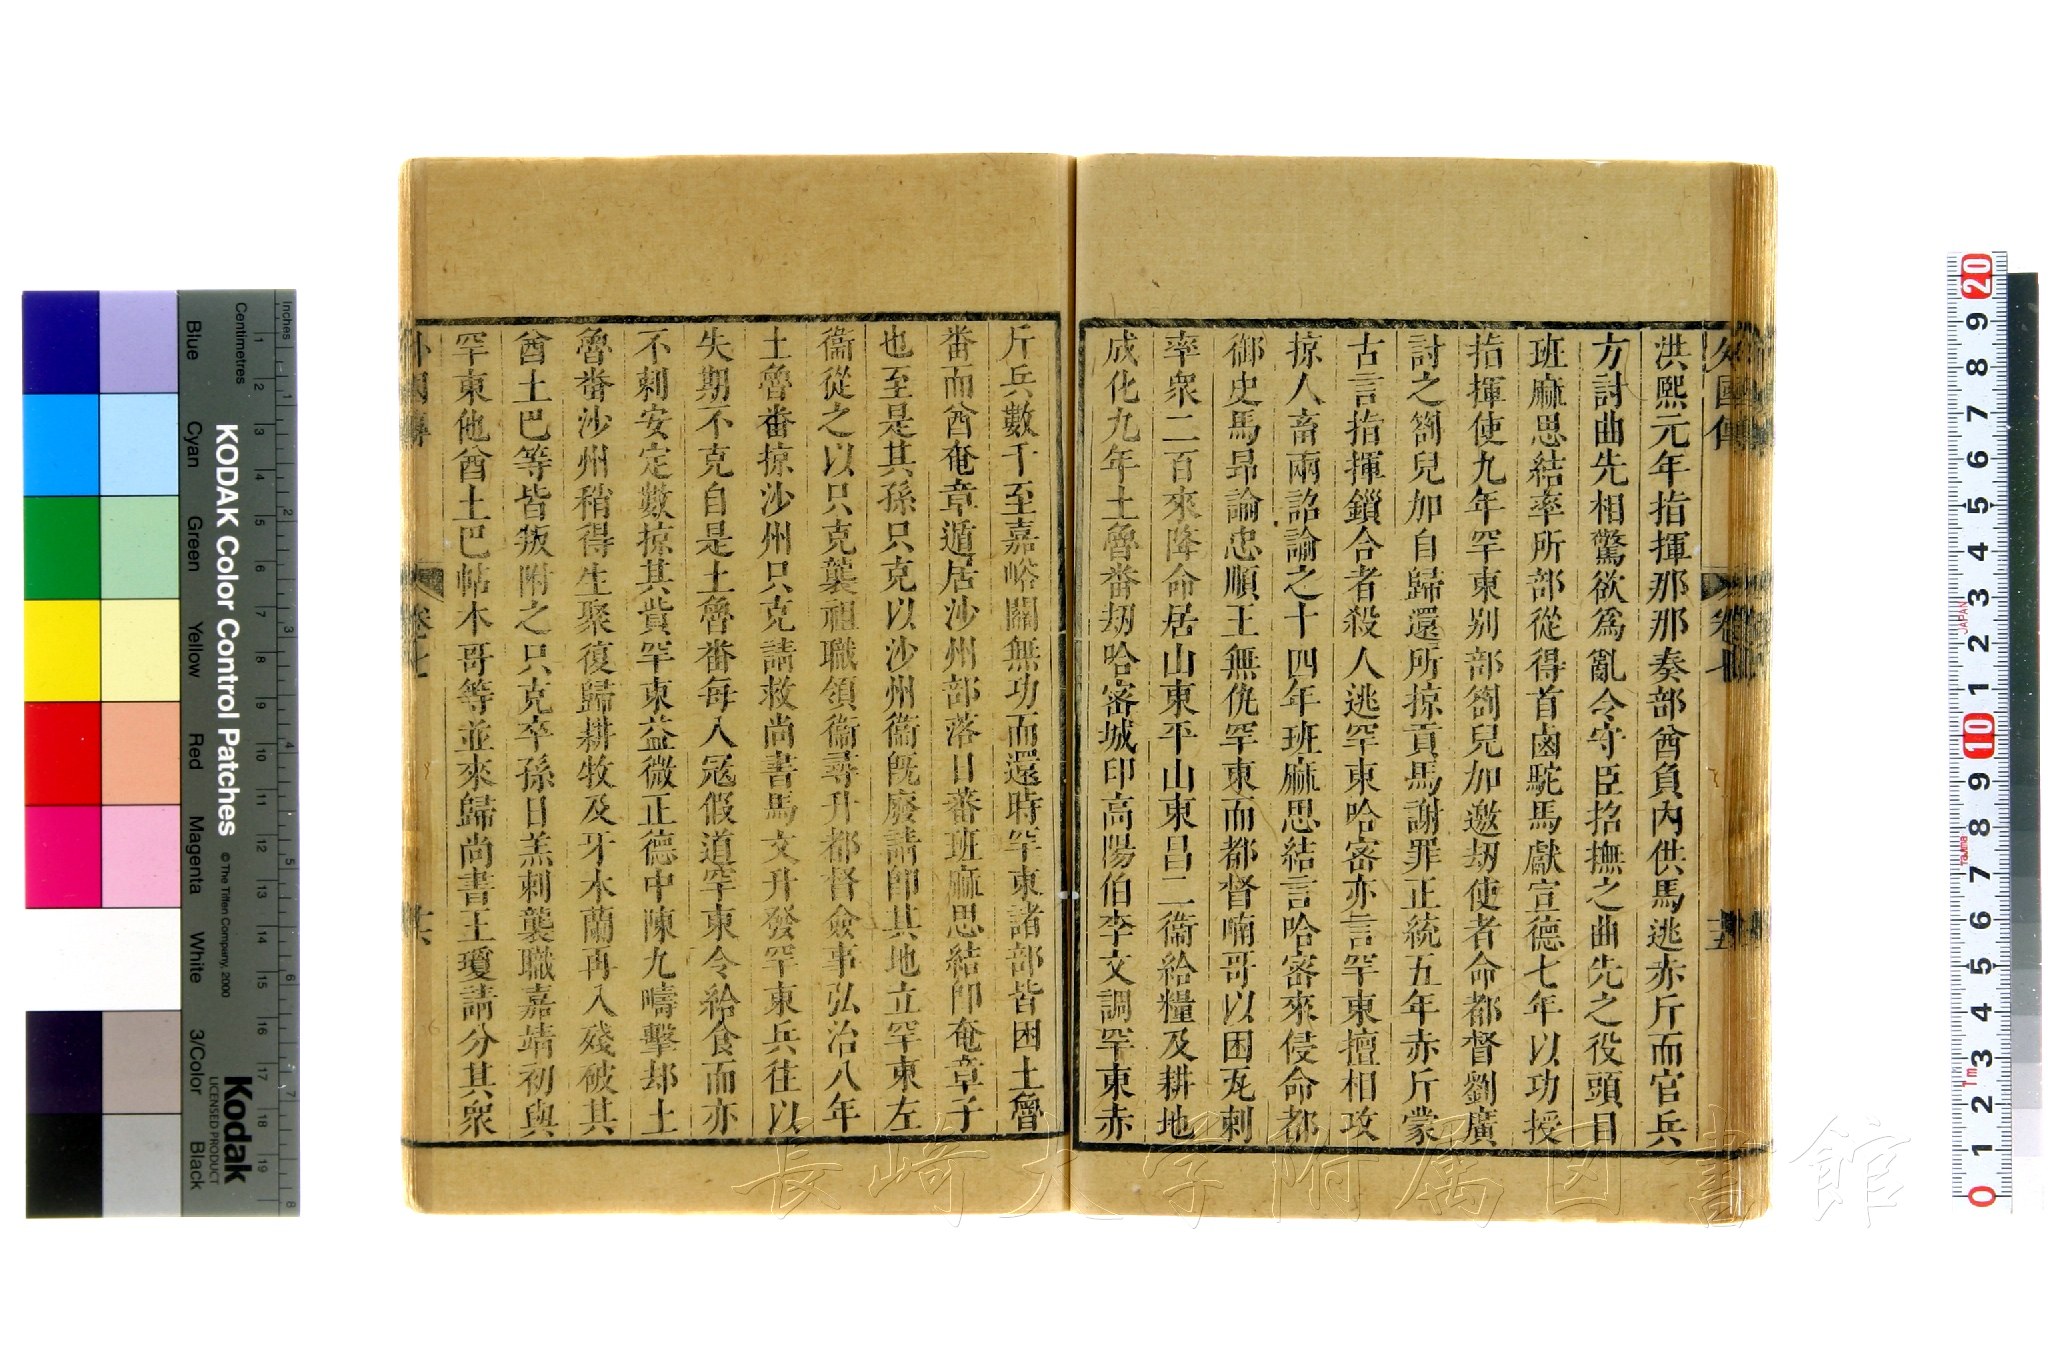 外國傳
卷七
洪熙元年指揮那那奏部酋負内供馬逃赤斤而官兵
方討曲先相驚欲爲亂令守臣招撫之曲先之役頭目
班麻思結率所部從得首鹵駝馬獻宣德七年以功授
指揮使九年罕東别部劄兒加邀刼使者命都督劉廣
討之劄兒加自歸還所掠貢馬謝罪正統五年赤斤蒙
古言指揮鎖合者殺人逃罕東哈密亦言罕東擅相攻
掠人畜兩詔諭之十四年班麻思結言哈密來侵命都
御史馬昂諭忠順王無仇罕東而都督喃哥以困瓦剌
率衆二百來降命居山東平山東昌二衞給糧及耕地
成化九年土魯畨刼哈密城印高陽伯李文調罕東赤
斤兵數千至嘉峪關無功而還時罕東諸部皆困土魯
畨而酋奄章遁居沙州部落日蕃班麻思結卽奄章子
也至是其孫只克以沙州衞旣廢請卽其地立罕東左
衞從之以只克襲祖職領衞尋升都督僉事弘治八年
土魯畨掠沙州只克請救尚書馬文升發罕東兵往以
失期不克自是土魯畨每入冦假道罕東令給食而亦
不剌安定數掠其貲罕東益微正德中陳九疇擊却土
魯畨沙州稍得生聚復歸耕牧及牙木蘭再入殘破其
酋土巴等皆叛附之只克卒孫日羔剌襲職嘉靖初與
罕東他酋土巴帖木哥等並來歸尚書王瓊請分其衆
外國傳
卷七
廿六
長崎大学附属図書館
KODAK Color Control Patches
© The Tiffen Company, 2000
Kodak
LICENSED PRODUCT
Inches
Centimetres
Blue
Cyan
Green
Yellow
Red
Magenta
White
3/Color
Black
1 2 3 4 5 6 7 8 9 10 11 12 13 14 15 16 17 18 19
1 2 3 4 5 6 7 8
20 9 8 7 6 5 4 3 2 1 10 9 8 7 6 5 4 3 2 1 0
JAPAN
Tajima
1m